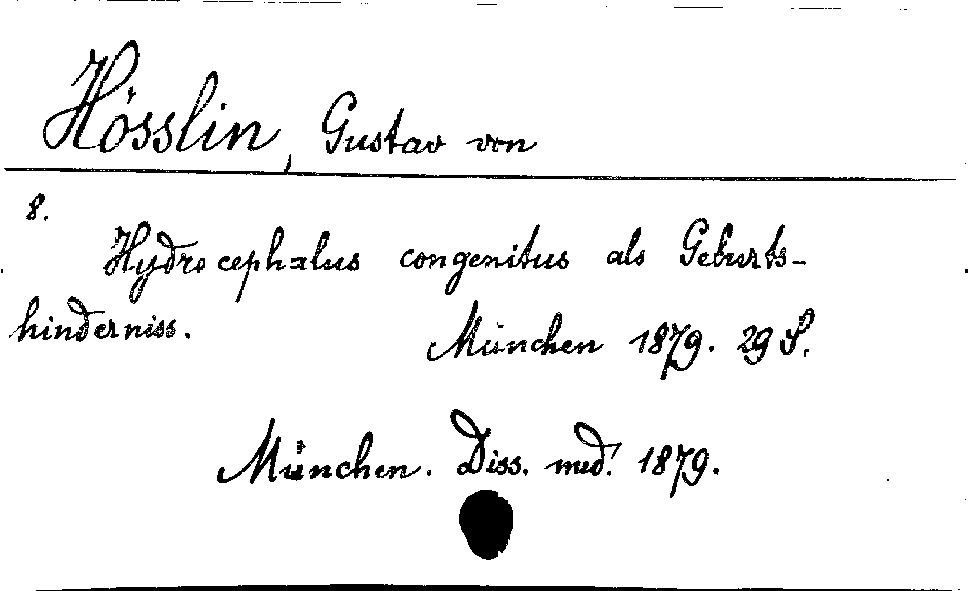 Hösslin, Gustav von
8.
Hydrocephalus congenitus als Geburts-
hinderniss.
München 1879. 29 S.
München. Diss. med. 1879.